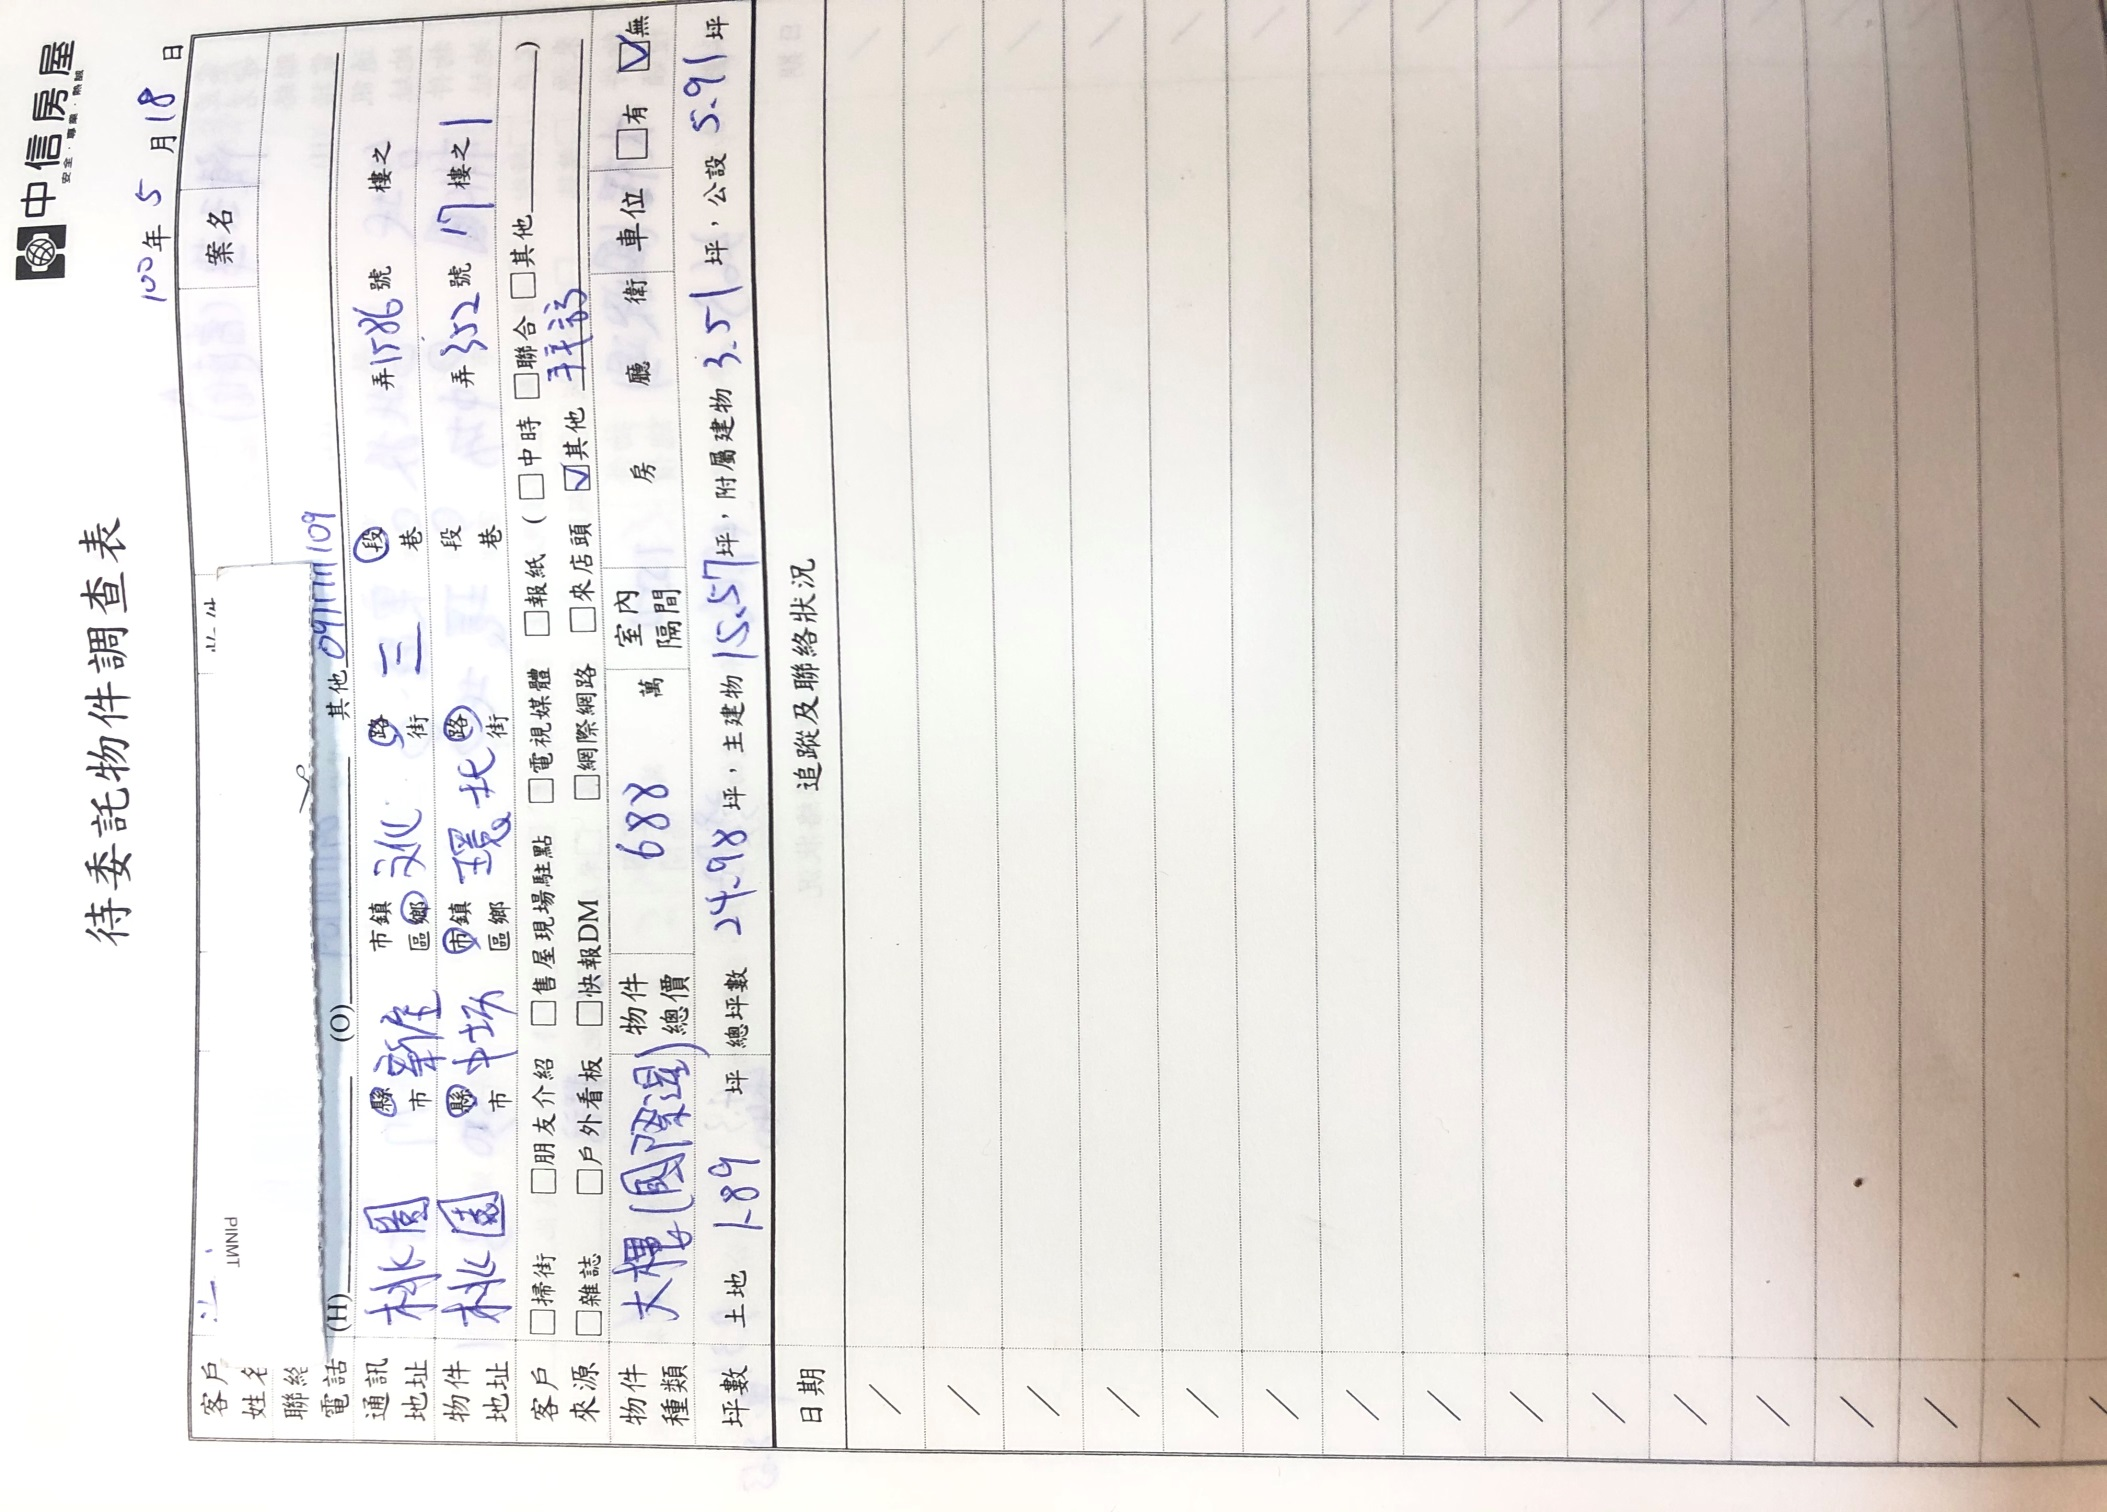 中信房屋
安全·專業·熱誠
待委託物件調查表
100年5月18日
客戶姓名 案名
PINMT
聯絡電話 (H) (O) 其他
通訊地址 桃園縣市 新屋 市鎮區鄉 文化 路街 三 段巷 弄1586號 樓之
物件地址 桃園縣市 中坜 市鎮區鄉 環北 路街 段巷 弄352號 17樓之1
客戶來源 □掃街 □朋友介紹 □售屋現場駐點 □電視媒體 □報紙(□中時 □聯合 □其他 )
□雜誌 □戶外看板 □快報DM □網際網路 □來店頭 ☑其他
物件種類 大樓(國際通) 物件總價 688 萬 室內隔間 房 廳 衛 車位 □有 ☑無
坪數 土地 1.89 坪 總坪數 24.98 坪,主建物 15.57坪,附屬建物 3.51坪,公設 5.91坪
日期 追蹤及聯絡狀況